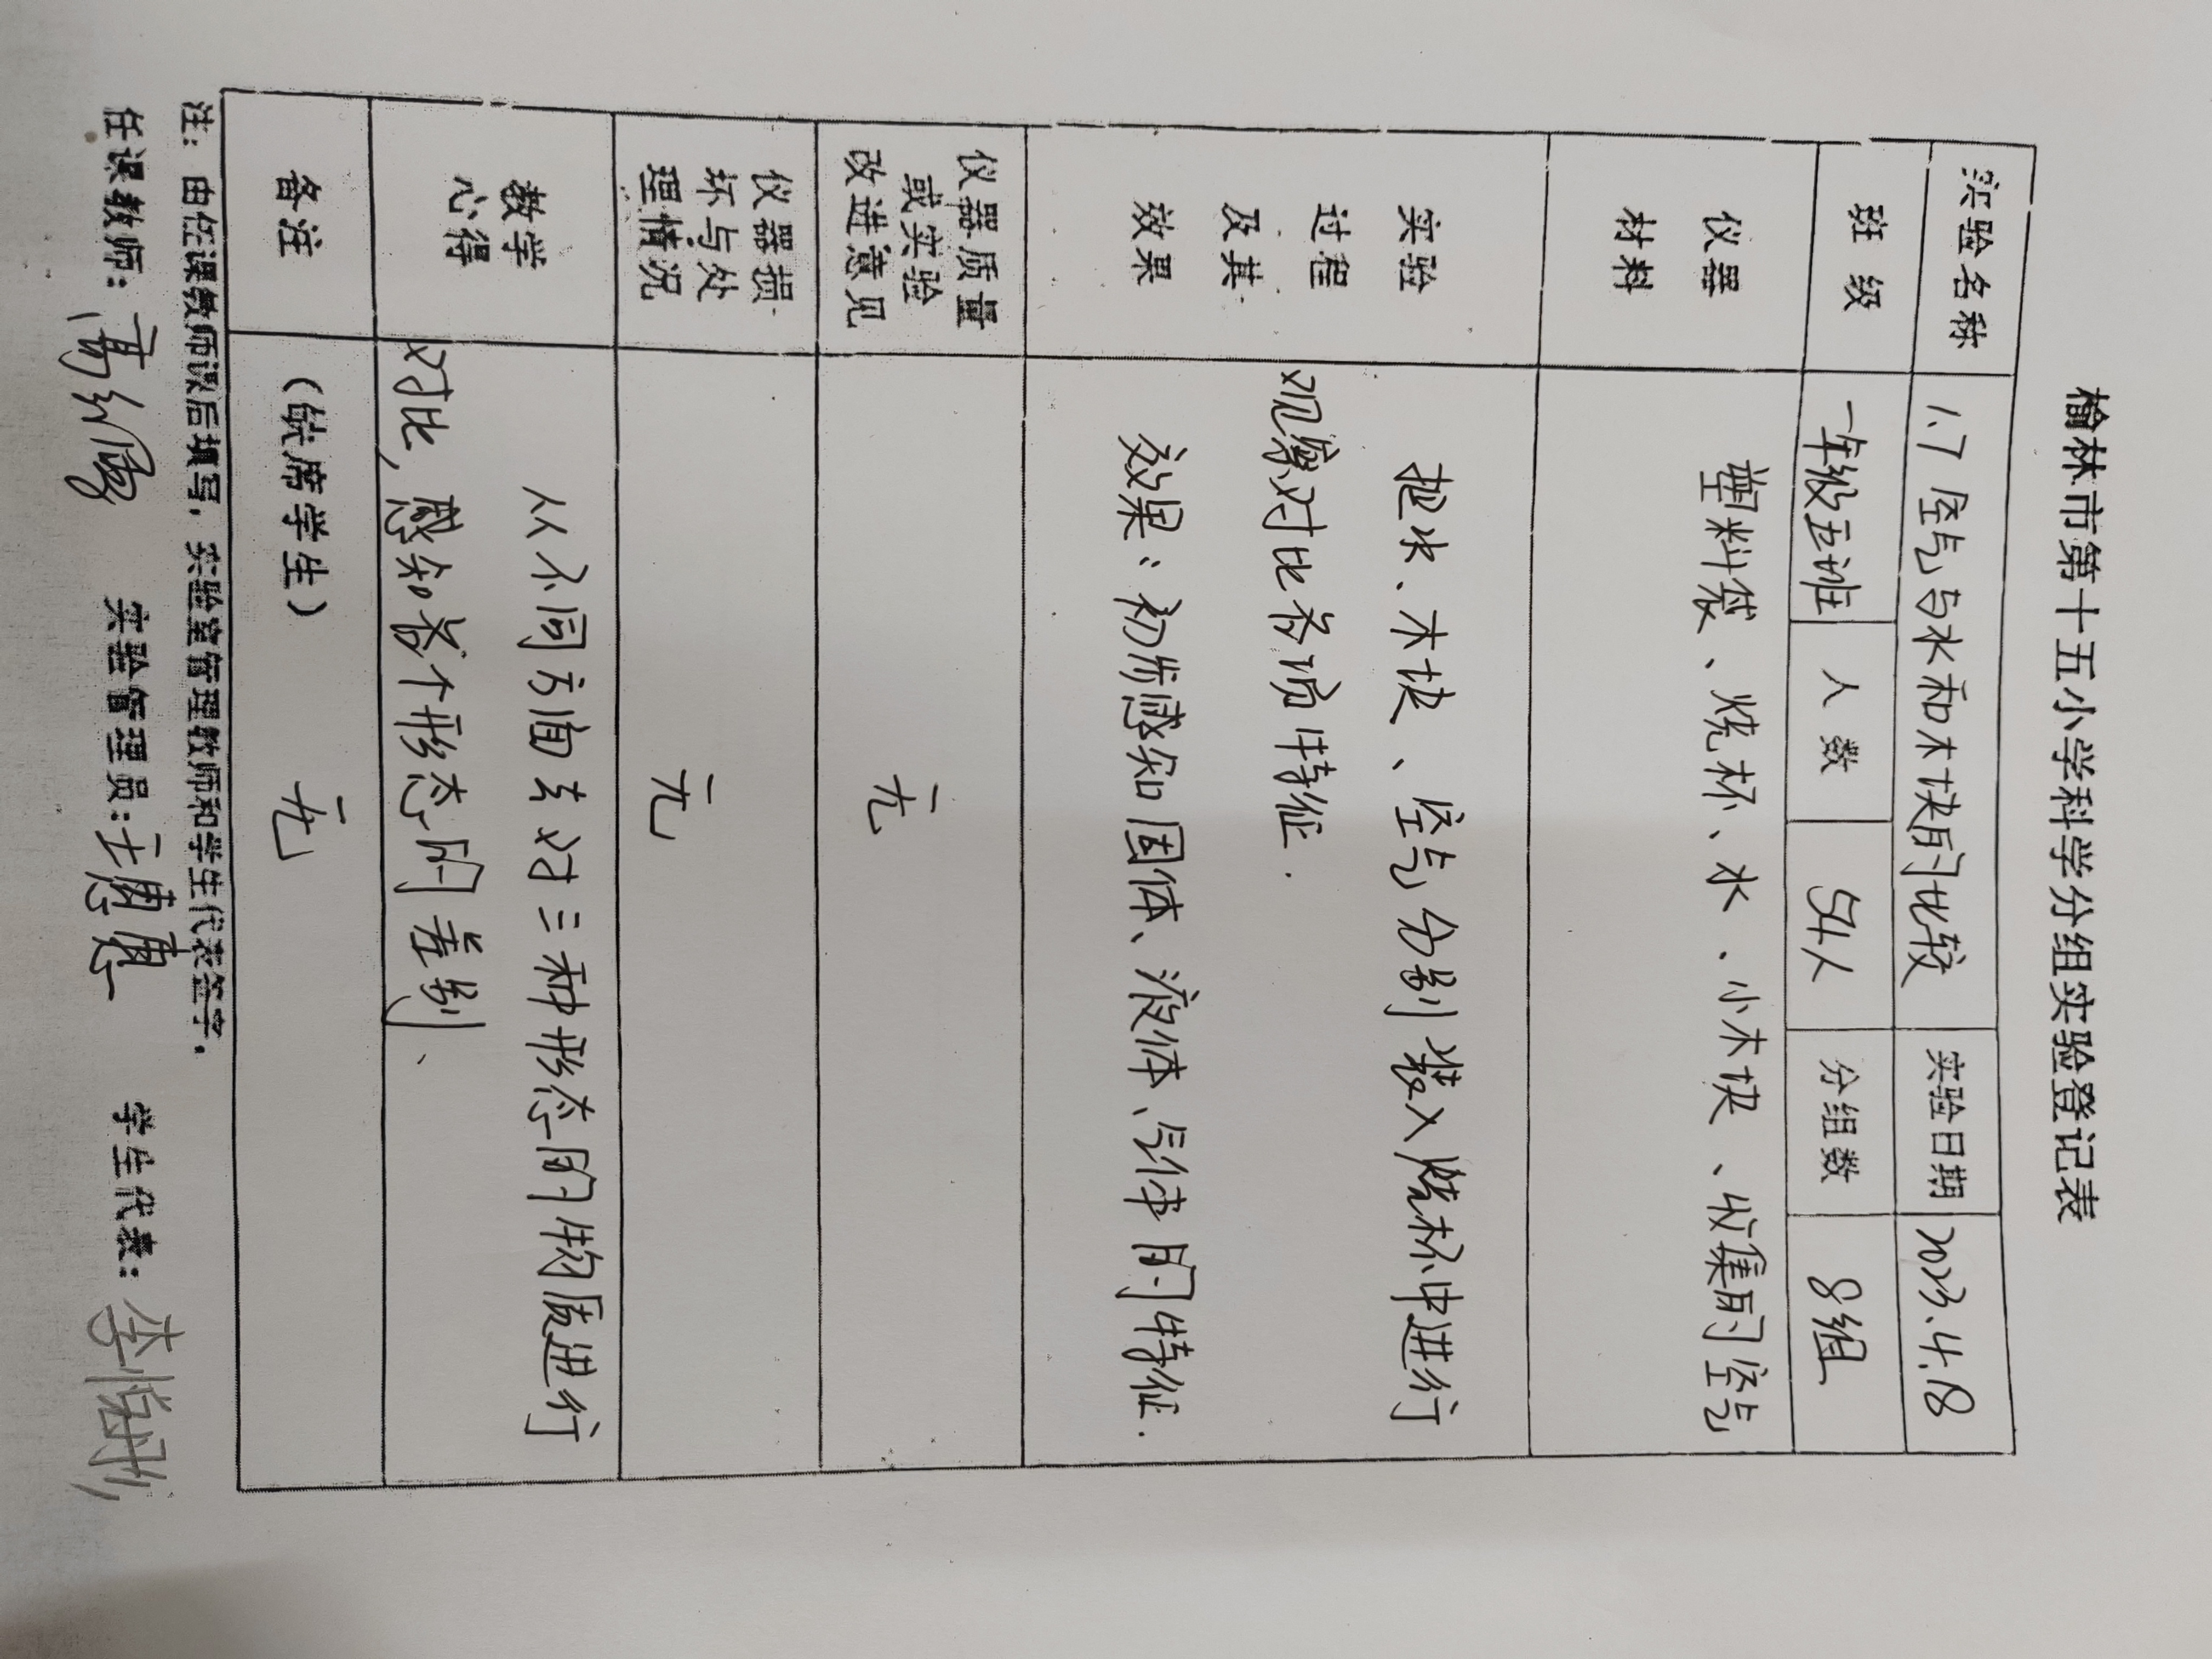 榆林市第十五小学科学分组实验登记表
实验名称 1.7 空气与水和木块的比较 实验日期 2023.4.18
班级 一年级五班 人数 54人 分组数 8组
仪器材料 塑料袋、烧杯、水、小木块、收集的空气
实验过程及其效果
把水、木块、空气分别装入烧杯中进行
观察对比各项特征.
效果:初步感知固体、液体、气体的特征.
仪器质量或实验改进意见 无
仪器损坏与处理情况 无
教学心得
从不同方面去对三种形态的物质进行
对比,感知各个形态的差别、
备注 (缺席学生) 无
注:由任课教师课后填写,实验室管理教师和学生代表签字.
任课教师: 实验管理员:王惠惠 学生代表: